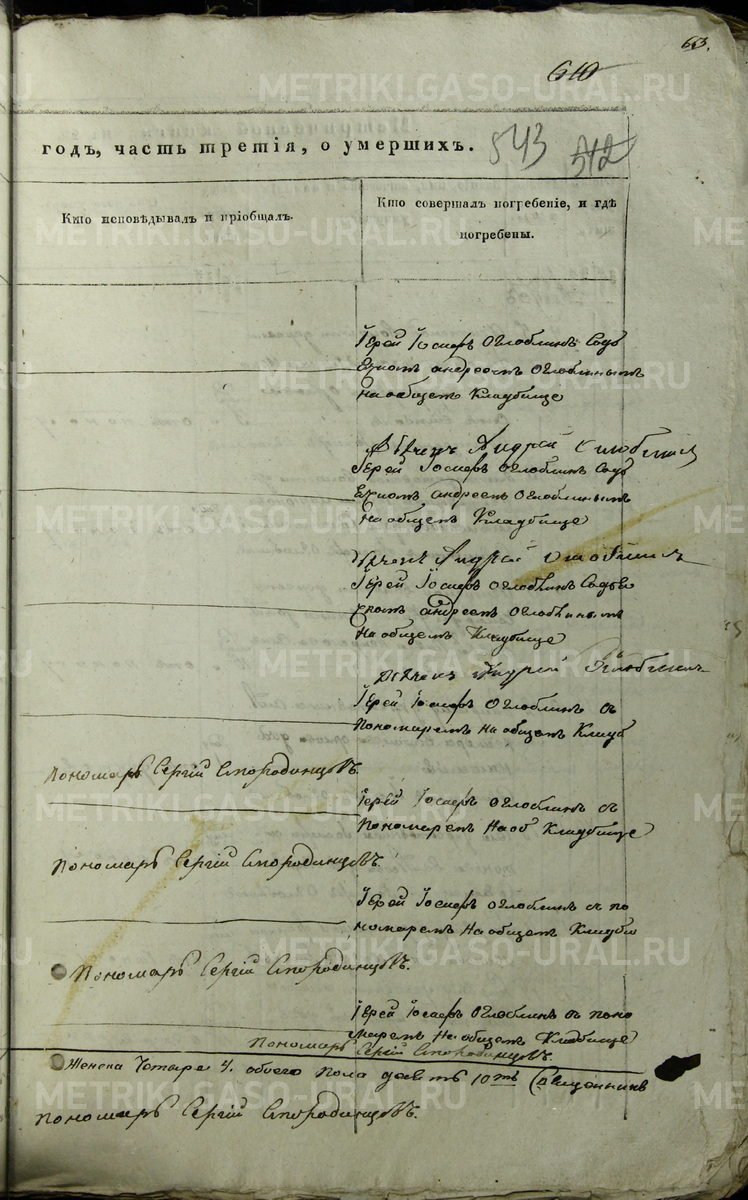 63.
610
годъ, часть третія, о умершихъ. 543 542
Кто исповѣдывалъ и пріобщалъ.
Кто совершалъ погребеніе, и гдѣ
погребены.
Іерей Іосифъ Оглоблинъ Содь
Андреемъ Оглоблинымъ
На общемъ Кладбище
Андрей
Іерей Іосифъ Оглоблинъ Содь
Андреемъ Оглоблинымъ
На общемъ Кладбище
Андрей
Іерей Іосифъ Оглоблинъ Содья
Андреемъ Оглоблинымъ
На общемъ Кладбище
Андрей
Іерей Іосифъ Оглоблинъ съ
Пономаремъ На общемъ Кладб
Пономарь Сергій Смородинцовъ.
Іерей Іосифъ Оглоблинъ съ
Пономаремъ На об Кладбище
Пономарь Сергій Смородинцовъ.
Іерей Іосифъ Оглоблинъ съ по
номаремъ На общемъ Кладби
Пономарь Сергій Смородинцовъ.
Іерей Іосифъ Оглоблинъ съ поно
маремъ На общемъ Кладбище
Пономарь Сергій Смородинцовъ.
Женска Четыре 4. обоего пола десеть 10ть Священникъ
Пономарь Сергій Смородинцовъ.
METRIKI.GASO-URAL.RU